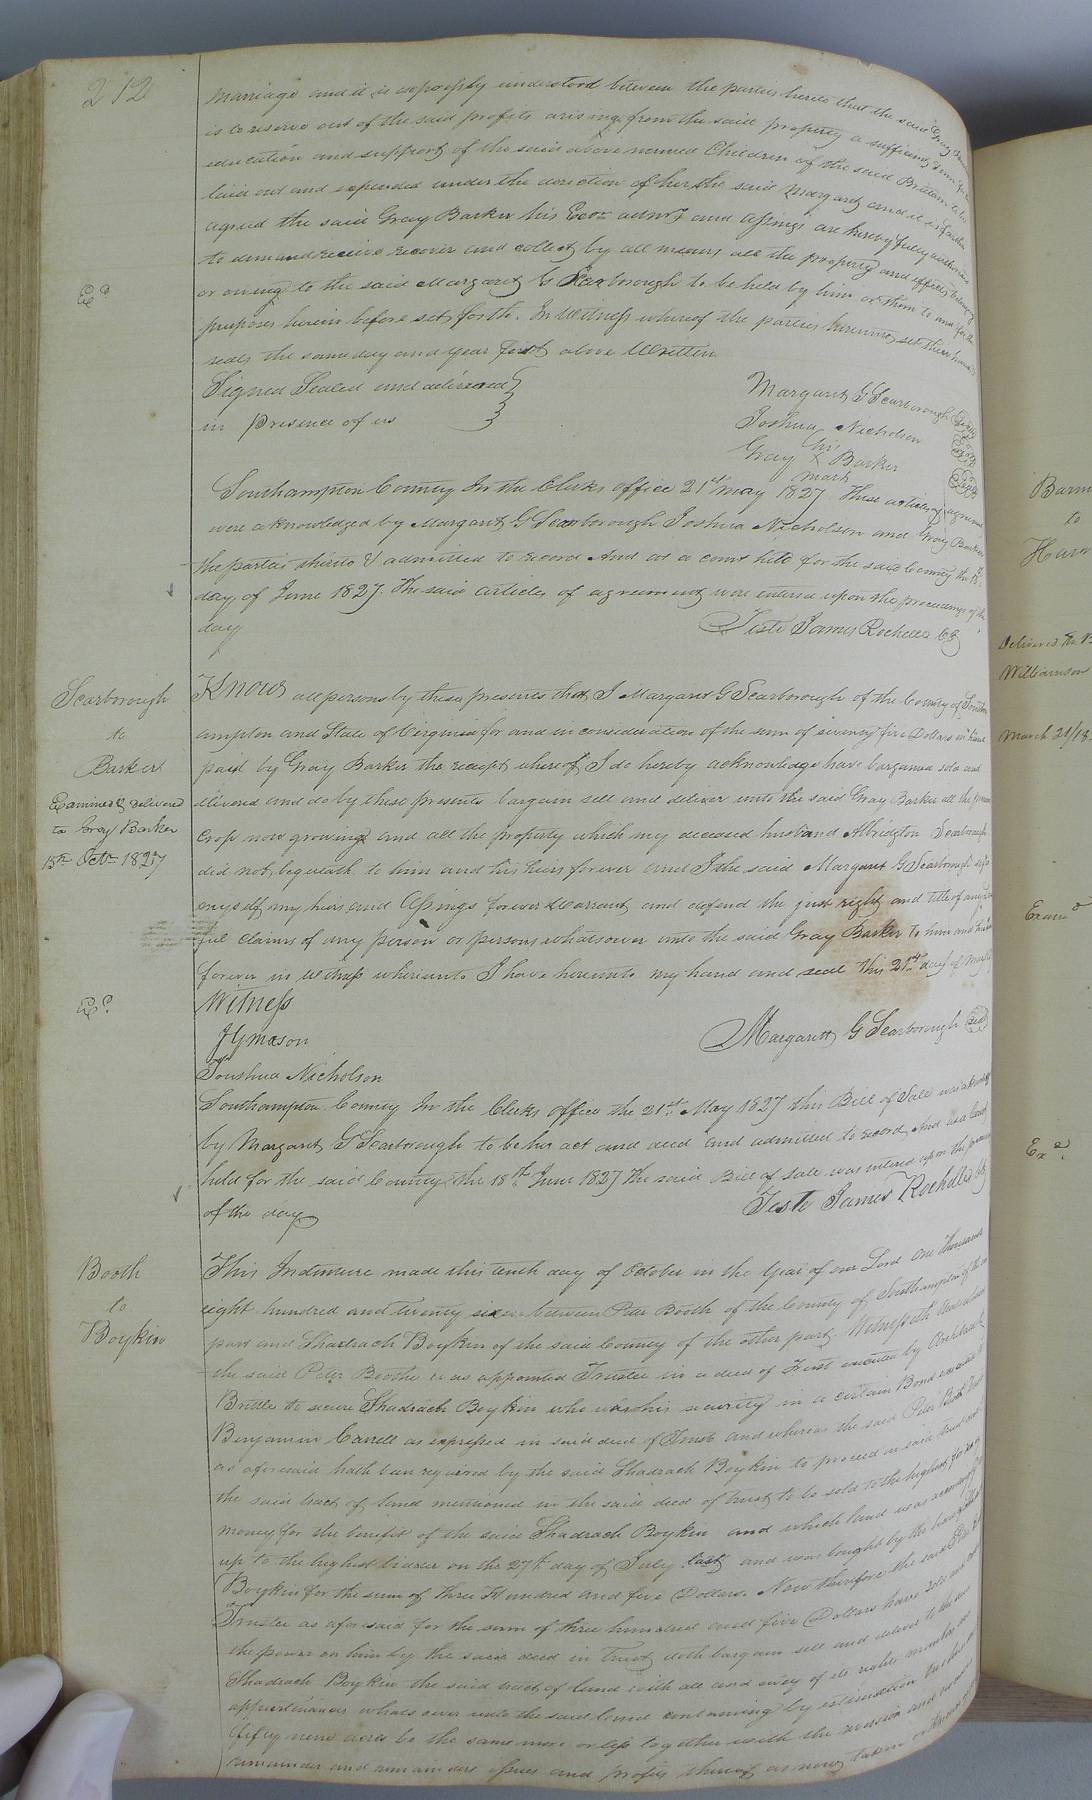 212
marriage and it is expressly understood between the parties hereto that the said Gray
is to reserve out of the said profits arising from the said property a sufficient sum for
education and support of the said above named Children of the said Britain to be
laid out and expended under the direction of her the said Margaret and it is further
agreed the said Gray Barker his Exor admr and assigns are hereby fully authorised
to demand receive recover and collect by all means all the property and effects belonging
or owing to the said Margaret G Scarborough to be held by him or them to and for the
purposes herein before set forth. In Witness whereof the parties hereunto set their hands
seals the same day and year first above Written
Exd
Signed Sealed and delivered
in presence of us
Margaret G Scarborough Seal
Joshua Nicholson Seal
his
Gray X Barker Seal
mark
Southampton County In the Clerks office 21st May 1827 These articles of agreement
were acknowledged by Margaret G Scarborough Joshua Nicholson and Gray Barker
the parties thereto & admitted to record And at a court held for the said County the 18th
day of June 1827. The said articles of agreement were entered upon the proceedings of the
day
Teste James Rochelle CC
Scarborough
to
Barker
Examined & delivered
to Gray Barker
15th Octr 1827
Know all persons by these presents that I Margaret G Scarborough of the County of South
ampton and State of Virginia for and in consideration of the sum of seventy five Dollars in hand
paid by Gray Barker the receipt whereof I do hereby acknowledge have bargained sold and
delivered and do by these presents bargain sell and deliver unto the said Gray Barker all the present
Crop now growing and all the property which my deceased husband Albridgton Scarborough
did not bequeath to him and his heirs forever and I the said Margaret G Scarborough
myself my heirs and Assings forever warrant and defend the just right and title of
ful claims of any person or persons whatsoever unto the said Gray Barker to him and his heirs
forever in witness whereunto I have hereunto my hand and seal this 21st day of May
Exd
Witness
J Y Mason
Joushua Nicholson
Margarett G Scarborough Seal
Southampton County In the Clerks office the 21st May 1827 this Bill of Sale was acknowledged
by Margaret G Scarborough to be her act and deed and admitted to record And at a Court
held for the said County the 18th June 1827 The said Bill of Sale was entered upon the proceedings
of the day
Teste James Rochelle CC
Booth
to
Boykin
This Indenture made this tenth day of October in the Year of our Lord One thousand
eight hundred and twenty six between Peter Booth of the County of Southampton of the one
part and Shadrach Boykin of the said County of the other part. Witnesseth that whereas
the said Peter Booth was appointed Trustee in a deed of Trust executed by
Brittle to secure Shadrach Boykin who was his security in a certain Bond executed to
Benjamin Carrell as expressed in said deed of Trust and whereas the said Peter Booth Trustee
as aforesaid hath been required by the said Shadrach Boykin to proceed in said trust and
the said tract of land mentioned in the said deed of trust to be sold to the highest for ready
money for the benefit of the said Shadrach Boykin and which land was accordingly
up to the highest bidder on the 27th day of July last and was bought by the said Shadrach
Boykin for the sum of three Hundred and five Dollars. Now therefore the said Peter Booth
Trustee as aforesaid for the sum of three hundred and five Dollars have sold and
the power on him by the said deed in Trust doth bargain sell and deliver to the said
Shadrach Boykin the said tract of land with all and every of its rights members and
appurtenances whatsoever unto the said land containing by estimation
fifty nine acres be the same more or less together with the reversion and
remainder and remainders issues and profits thereof as now taken
Barn
to
Harr
Delivered to
Williamson
March 21/18
Examd
Exd